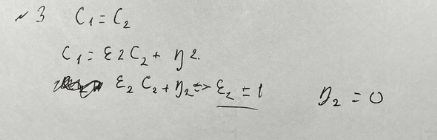 ~3 C₁ = C₂
C₁ = ε2 C₂ + η 2.
ε₂ C₂ + η₂ => ε₂ = 1 η₂ = 0